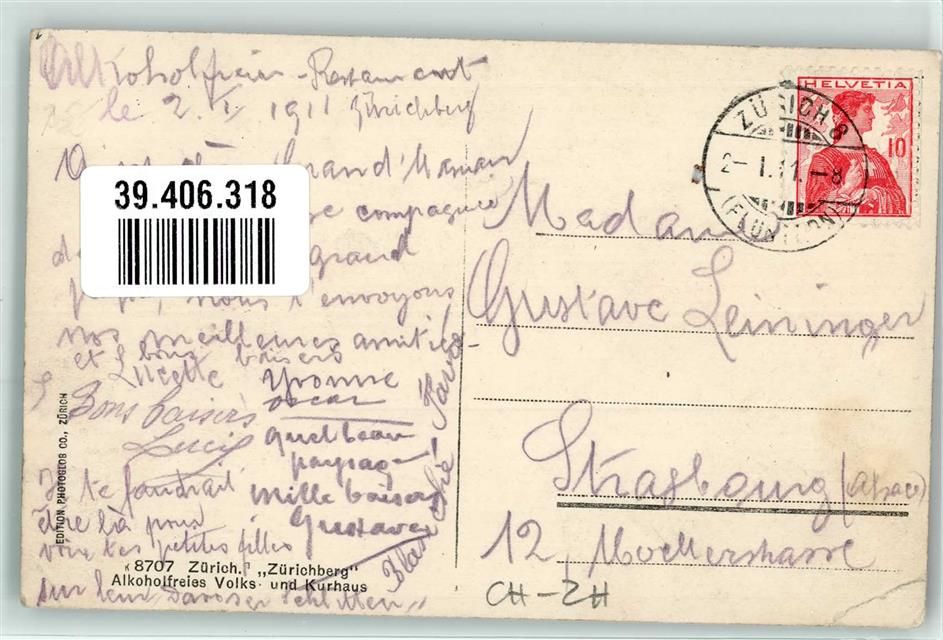 Alkoholfreier-Restaurant
le 2. I. 1911 Zürichberg
Grand'Maman
39.406.318
compagnie
grand
nous t'envoyons
nos meilleures amitiés
et bons baisers
Lucette Yvonne
Oscar
Bons baisers
Lucie
quel beau
paysage
mille baisers
Gustave
Il te faudrait
être là pour
voir tes petites filles
sur leur "Davoser Schlitten"
EDITION PHOTOGLOB CO., ZÜRICH
8707 Zürich. "Zürichberg"
Alkoholfreies Volks- und Kurhaus
HELVETIA
10
ZÜRICH 8
2-I.11.-8
(FLUNTERN)
Madame
Gustave Leininger
Strasbourg (Alsace)
12, Mollerstrasse
CH-ZH